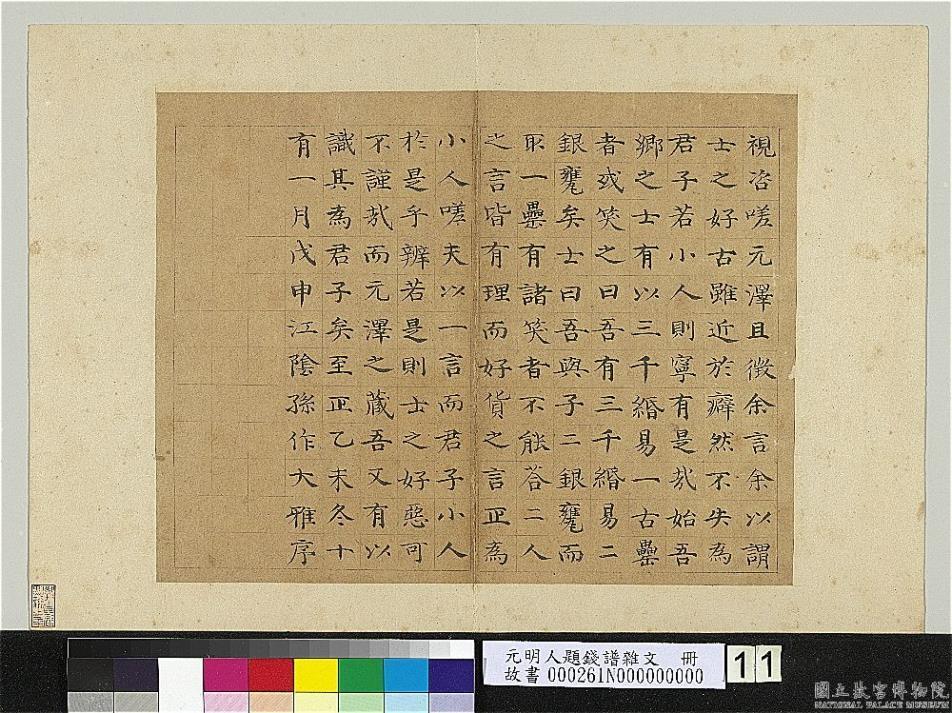 視咨嗟元澤且徵余言余以謂
士之好古雖近於癖然不失為
君子若小人則寧有是哉始吾
鄉之士有以三千緡易一古罍
者或笑之曰吾有三千緡易二
銀甕矣士曰吾與子二銀甕而
取一罍有諸笑者不能答二人
之言皆有理而好貨之言正為
小人嗟夫以一言而君子小人
於是乎辨若是則士之好惡可
不謹哉而元澤之藏吾又有以
識其為君子矣至正乙未冬十
有一月戊申江陰孫作大雅序
元明人題錢譜雜文 冊
故書 000261N000000000
11
國立故宮博物院
NATIONAL PALACE MUSEUM